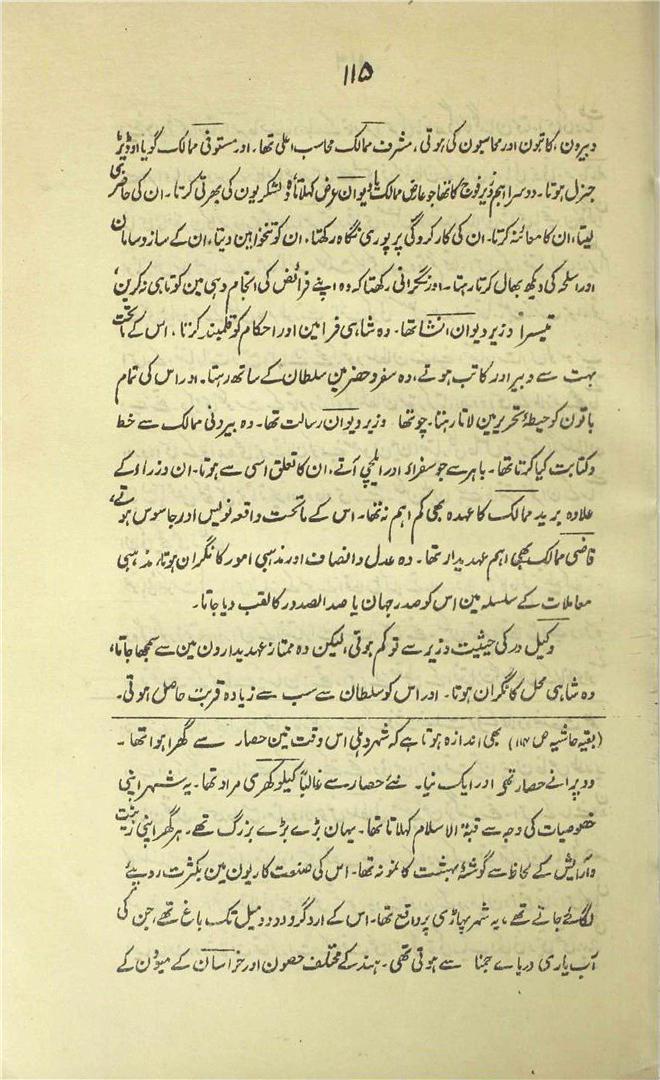 ۱۱۵
دبیرون، کاتبون اور محاسبون کی ہوتی، مشرف ممالک محاسب اعلی تھا۔ اور مستوفی ممالک گویا اوڈیٹر
جنرل ہوتا۔ دوسرا اہم وزیر فوج کا تھا جو عارض ممالک یا دیوان عرض کہلاتا، وہ لشکریون کی بھرتی کرتا۔ ان کی حاضری
لیتا، ان کا معائنہ کرتا۔ ان کی کارکردگی پر پوری نگاہ رکھتا، ان کو تنخواہین دیتا، ان کے ساز و سامان
اور اسلحہ کی دیکھ بھال کرتا رہتا۔ اور نگرانی رکھتا کہ وہ اپنے فرائض کی انجام دہی مین کوتاہی نہ کرین،
تیسرا وزیر دیوان انشا تھا۔ وہ شاہی فرامین اور احکام کو قلمبند کرتا، اس کے ماتحت
بہت سے دبیر اور کاتب ہوتے، وہ سفر و حضر مین سلطان کے ساتھ رہتا۔ اور اس کی تمام
باتون کو حیطۂ تحریر مین لاتا رہتا۔ چوتھا وزیر دیوان رسالت تھا۔ وہ بیرونی ممالک سے خط
و کتابت کیا کرتا تھا۔ باہر سے جو سفراء اور ایلچی آتے، ان کا تعلق اسی سے ہوتا۔ ان وزراء کے
علاوہ برید ممالک کا عہدہ بھی کم اہم نہ تھا۔ اس کے ماتحت واقعہ نویس اور جاسوس ہوتے،
قاضی ممالک بھی اہم عہدیدار تھا۔ وہ عدل و انصاف اور مذہبی امور کا نگران ہوتا، مذہبی
معاملات کے سلسلہ مین اس کو صدر جہان یا صدالصدور کا لقب دیا جاتا۔
وکیل در کی حیثیت وزیر سے تو کم ہوتی، لیکن وہ ممتاز عہدیدارون مین سے سمجھا جاتا،
وہ شاہی محل کا نگران ہوتا۔ اور اس کو سلطان سے سب سے زیادہ قربت حاصل ہوتی۔
(بقیہ حاشیہ ص ۱۱۴) بھی اندازہ ہوتا ہے کہ شہر دہلی اس وقت تین حصار سے گھرا ہوا تھا۔
دو پرانے حصار تھے اور ایک نیا۔ نئے حصار سے غالباً کیلوکھری مراد تھا۔ یہ شہر اپنی
خصوصیات کی وجہ سے قبۃ الاسلام کہلاتا تھا۔ یہان بڑے بڑے بزرگ تھے۔ ہر گھر اپنی زینت
و آرایش کے لحاظ سے گوشۂ بہشت کا نمونہ تھا۔ اس کی صنعت کاریون مین بکثرت روپئے
لگائے جاتے تھے، یہ شہر پہاڑی پر واقع تھا۔ اس کے اردگرد دو دو میل تک باغ تھے، جن کی
آب یاری دریاے جمنا سے ہوتی تھی۔ ہند کے مختلف حصون اور خراسان کے میوؤن کے